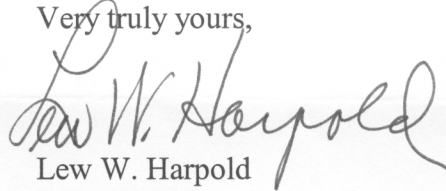 Very truly yours,
Lew W. Harpold
Lew W. Harpold